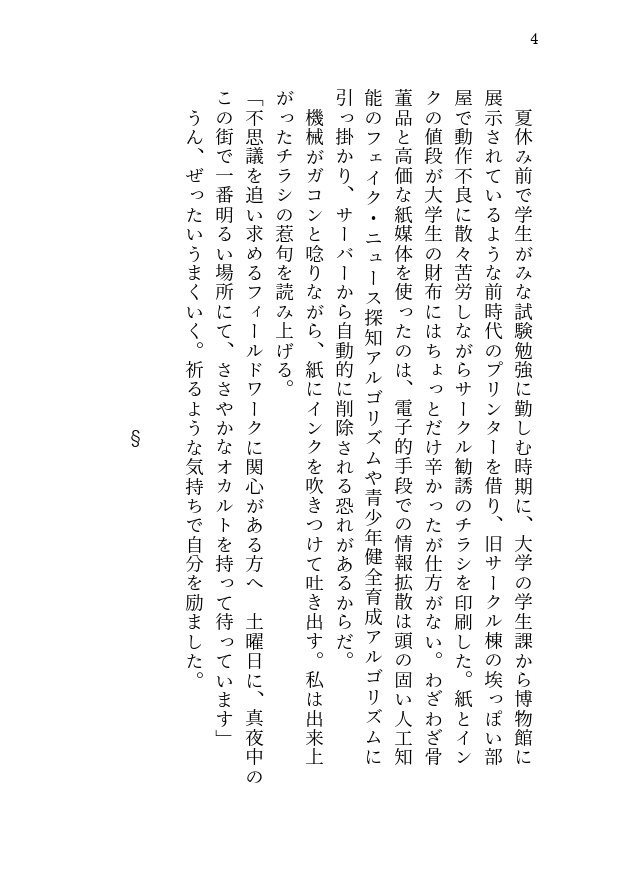 4
夏休み前で学生がみな試験勉強に勤しむ時期に、大学の学生課から博物館に
展示されているような前時代のプリンターを借り、旧サークル棟の埃っぽい部
屋で動作不良に散々苦労しながらサークル勧誘のチラシを印刷した。紙とイン
クの値段が大学生の財布にはちょっとだけ辛かったが仕方がない。わざわざ骨
董品と高価な紙媒体を使ったのは、電子的手段での情報拡散は頭の固い人工知
能のフェイク・ニュース探知アルゴリズムや青少年健全育成アルゴリズムに
引っ掛かり、サーバーから自動的に削除される恐れがあるからだ。
機械がガコンと唸りながら、紙にインクを吹きつけて吐き出す。私は出来上
がったチラシの惹句を読み上げる。
「不思議を追い求めるフィールドワークに関心がある方へ　土曜日に、真夜中の
この街で一番明るい場所にて、ささやかなオカルトを持って待っています」
うん、ぜったいうまくいく。祈るような気持ちで自分を励ました。
§